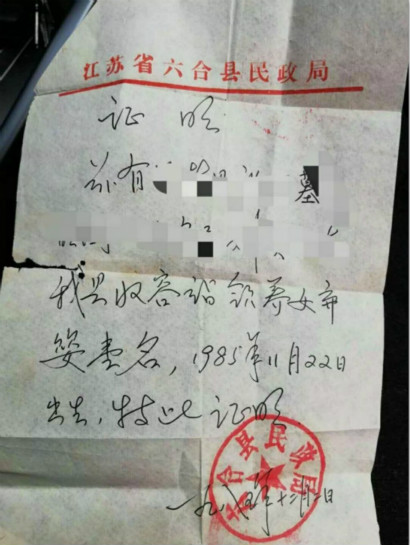 江苏省六合县民政局
证明
兹有
墓
我县收容站领养女弃
婴壹名，1985年11月22日
出生，特此证明
六合县民政局
一九八五年十二月 日